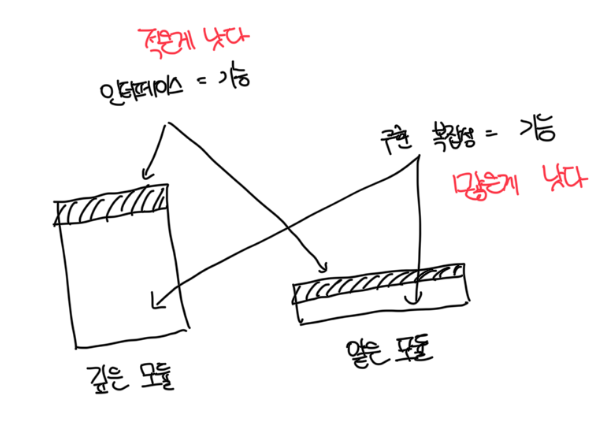 적은게 낫다
인터페이스 = 기능
구현 복잡성 = 기능
많은게 낫다
깊은 모듈
얕은 모듈